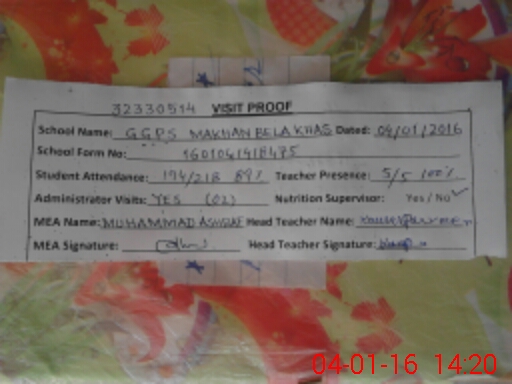 32330514 VISIT PROOF
School Name: GGPS MAKHAN BELA KHAS Dated: 04/01/2016
School Form No:
Student Attendance: 194/218 89% Teacher Presence: 5/5 100%
Administrator Visits: YES (02) Nutrition Supervisor: Yes / No ✓
MEA Name: MUHAMMAD ASHRAF Head Teacher Name:
MEA Signature: Head Teacher Signature:
04-01-16 14:20